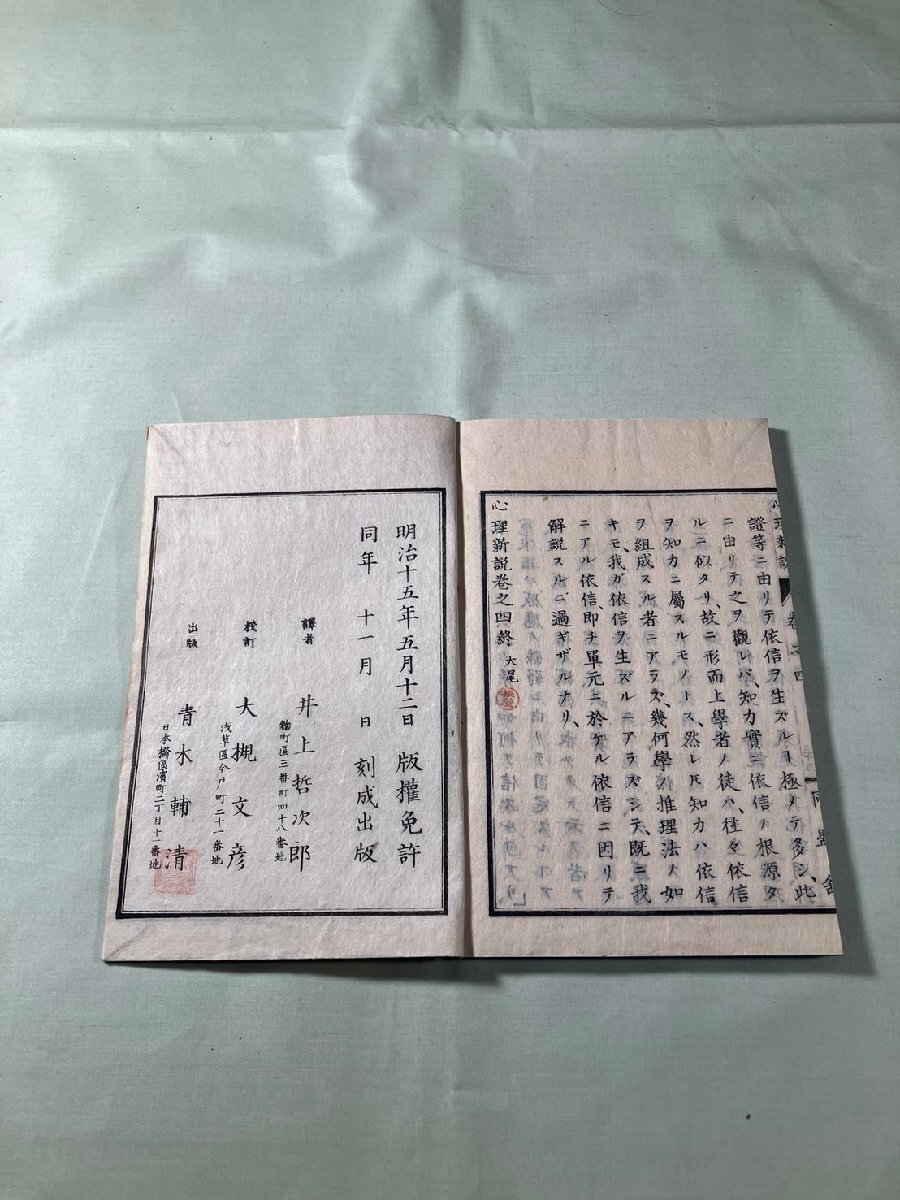 證等ニ由リテ依信ヲ生ズルコ極メテ多シ、此
ニ由リテ之ヲ觀レバ、知力實ニ依信ノ根源タ
ルニ似タリ、故ニ形而上學者ノ徒ハ、往々依信
ヲ知力ニ屬スルモノトス、然レ𪜈知力ハ依信
ヲ組成スル者ニアラズ、幾何學ノ推理法ノ如
キモ、我ガ依信ヲ生ズルニアラズシテ、既ニ我
ニアル依信、即チ單元ニ於ケル依信ニ因リテ
解説スルニ過ギザルナリ、
心理新説卷之四終 大尾
明治十五年五月十二日 版權免許
同年 十一月 日 刻成出版
譯者 井上哲次郎
麹町區三番町四十八番地
校訂 大槻文彦
淺草區今戸町二十一番地
出版 青木輔清
日本橋區濱町二丁目十一番地